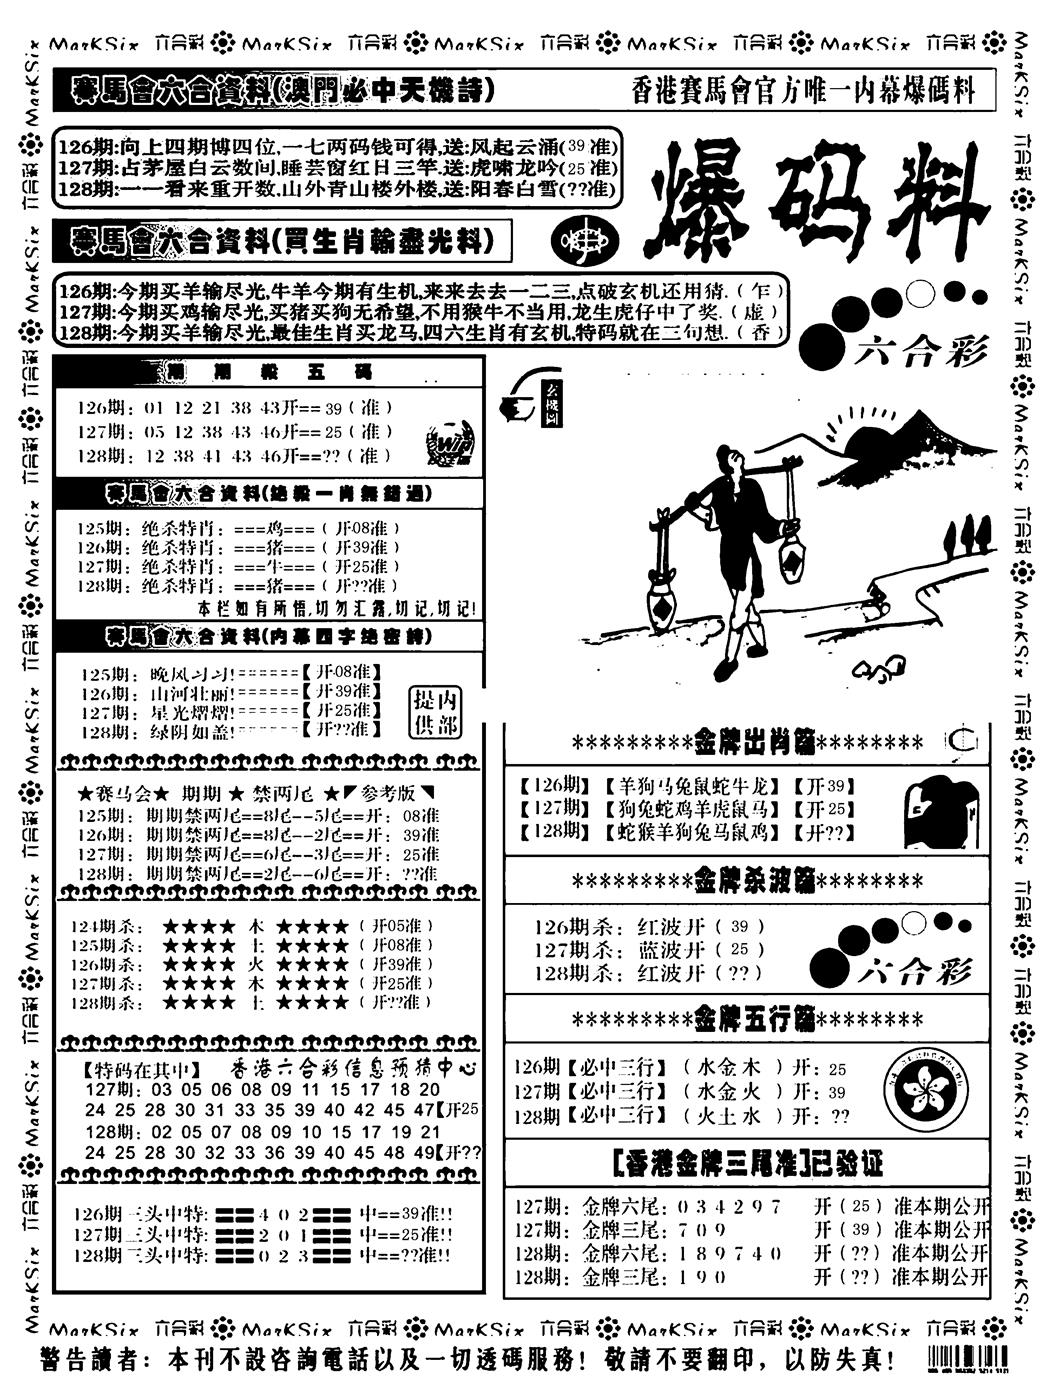 MarKSix 六合彩 MarKSix 六合彩 MarKSix 六合彩 MarKSix 六合彩 MarKSix 六合彩
賽馬會六合資料(澳門必中天機詩)
香港賽馬會官方唯一内幕爆碼料
126期:向上四期博四位,一七两码钱可得,送:风起云涌(39准)
127期:占茅屋白云数间,睡芸窗红日三竿,送:虎啸龙吟(25准)
128期:一一看来重开数,山外青山楼外楼,送:阳春白雪(??准)
爆码料
賽馬會六合資料(買生肖輸盡光料)
126期:今期买羊输尽光,牛羊今期有生机,来来去去一二三,点破玄机还用猜.(乍)
127期:今期买鸡输尽光,买猪买狗无希望,不用猴牛不当用,龙生虎仔中了奖.(虚)
128期:今期买羊输尽光,最佳生肖买龙马,四六生肖有玄机,特码就在三句想.(香)
六合彩
期期殺五碼
126期: 01 12 21 38 43开==39(准)
127期: 05 12 38 43 46开==25(准)
128期: 12 38 41 43 46开==??(准)
玄機圖
賽馬會六合資料(绝殺一肖無错過)
125期: 绝杀特肖: ===鸡===(开08准)
126期: 绝杀特肖: ===猪===(开39准)
127期: 绝杀特肖: ===牛===(开25准)
128期: 绝杀特肖: ===猪===(开??准)
本栏如有所悟,切勿汇露,切记,切记!
賽馬會六合資料(内幕四字绝密詩)
125期: 晚风习习!======【开08准】
126期: 山河壮丽!======【开39准】
127期: 星光熠熠!======【开25准】
128期: 绿阴如盖!------【开??准】
提内
供部
★赛马会★ 期期 ★ 禁两尾 ★参考版
125期: 期期禁两尾==8尾--5尾==开: 08准
126期: 期期禁两尾==8尾--2尾==开: 39准
127期: 期期禁两尾==6尾--3尾==开: 25准
128期: 期期禁两尾==2尾--6尾==开: ??准
124期杀: ★★★★ 木 ★★★★(开05准)
125期杀: ★★★★ 土 ★★★★(开08准)
126期杀: ★★★★ 火 ★★★★(开39准)
127期杀: ★★★★ 木 ★★★★(开25准)
128期杀: ★★★★ 土 ★★★★(开??准)
【特码在其中】 香港六合彩信息预猜中心
127期: 03 05 06 08 09 11 15 17 18 20
24 25 28 30 31 33 35 39 40 42 45 47【开25
128期: 02 05 07 08 09 10 15 17 19 21
24 25 28 30 32 33 36 39 40 45 48 49【开??
126期三头中特: 4 0 2 中==39准!!
127期三头中特: 2 0 1 中==25准!!
128期三头中特: 0 2 3 中==??准!!
*********金牌出肖篇********
【126期】【羊狗马兔鼠蛇牛龙】【开39】
【127期】【狗兔蛇鸡羊虎鼠马】【开25】
【128期】【蛇猴羊狗兔马鼠鸡】【开??】
*********金牌杀波篇********
126期杀: 红波开(39)
127期杀: 蓝波开(25)
128期杀: 红波开(??)
六合彩
*********金牌五行篇********
126期【必中三行】(水金木)开: 25
127期【必中三行】(水金火)开: 39
128期【必中三行】(火土水)开: ??
[香港金牌三尾准]已验证
127期: 金牌六尾: 0 3 4 2 9 7 开(25)准本期公开
127期: 金牌三尾: 7 0 9 开(39)准本期公开
128期: 金牌六尾: 1 8 9 7 4 0 开(??)准本期公开
128期: 金牌三尾: 1 9 0 开(??)准本期公开
MarKSix 六合彩 MarKSix 六合彩 MarKSix 六合彩 MarKSix 六合彩 MarKSix 六合彩
警告讀者: 本刊不設咨詢電話以及一切透碼服務! 敬請不要翻印, 以防失真!